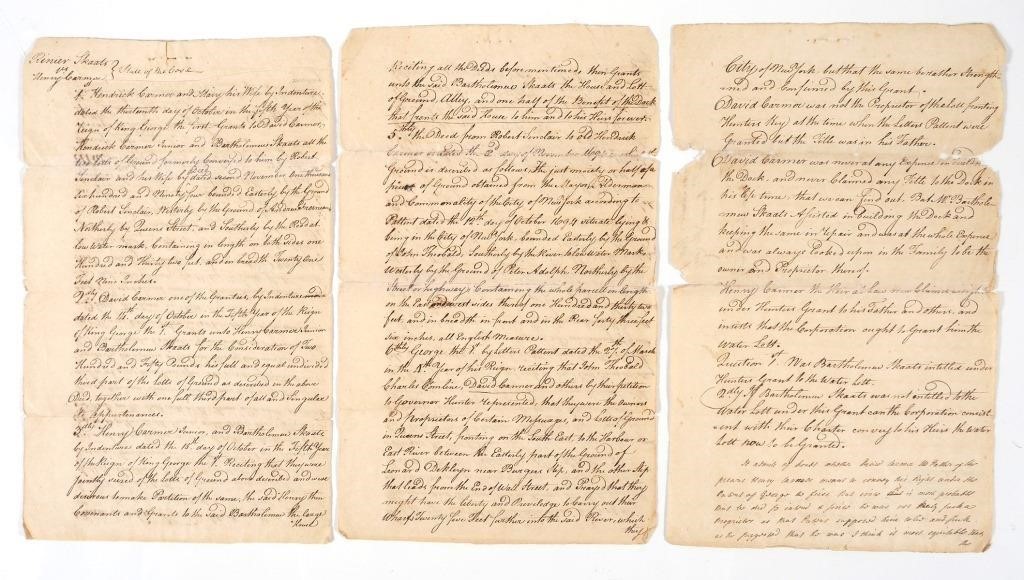 Rinier Skaats
vs
Henry Carmer } State of the Case
1st Hendrick Carmer and Mary his Wife by Indenture
dated the thirteenth day of October in the Fifth Year of the
Reign of King George the First Grants to David Carmer,
Hendrick Carmer Junior and Bartholomew Skaats all the
Lotts of Ground formerly Conveyed to him by Robert
Sinclair and his Wife by deed dated second November One thousand
Six hundred and Ninety four bounded Easterly by the Ground
of Robert Sinclair, Westerly by the Ground of Andrew
Northerly by Queens Street, and Southerly by the River at
low Water mark, Containing in length on both Sides one
Hundred and Thirty two feet, and in breadth Twenty One
Feet Nine Inches.
2dly David Carmer one of the Grantees, by Indenture
dated the 14th day of October in the Fifth Year of the Reign
of King George the 1st Grants unto Henry Carmer Junior
and Bartholomew Skaats for the Consideration of Two
Hundred and Fifty Pounds his full and equal undivided
third part of the Lotts of Ground as described in the above
Deed together with one full third part of all and Singular
the appurtenances.
3dly Henry Carmer Junior, and Bartholomew Skaats
by Indenture dated the 15th day of October in the Fifth Year
of the Reign of King George the 1st Reciting that they were
jointly seized of the Lotts of Ground above described and were
desirous to make Partition of the same, the said Henry then
Covenants and Grants to the Said Bartholomew the large
House
Reciting all the Deeds before mentioned then Grants
unto the Said Bartholomew Skaats the House and Lott
of Ground Alley, and one half of the Benefit of the Dock
that fronts the Said House to him and to his Heirs forever.
5thly The Deed from Robert Sinclair to old Hendrick
Carmer dated the 2d day of November 1694
Ground is described as follows the just moiety or half of a
piece of Ground obtained from the Mayor Alderman
and Commonality of the City of New York according to
Pattent dated the 12th day of October 1694 situate lying &
being in the City of New York bounded Easterly by the Ground
of John Theobald, Southerly by the River to low Water Mark,
Westerly by the Ground of Peter Adolph, Northerly by the
Street or highway; Containing the whole parcell in length
in the East and west sides thereof one Hundred and thirty two
feet, and in breadth in front and in the Rear forty three feet
Six inches, all English Measure.
6thly George the 1st by Letters Pattent dated the 27th of March
in the 4th Year of his Reign, reciting that John Theobald
Charles Comline, David Carmer and others by their petition
to Governor Hunter represented, that they were the Owners
and Proprietors of Certain Messuages, and Lotts of Ground
in Queens Street, fronting on the South East, to the Harbour or
East River between the Easterly part of the Ground of
Leonard Dekleyn near Burgers Slip, and the other Slip
that leads from the End of Wall Street, and Prayed that they
might have the Liberty and Priviledge to Carry out their
Wharfs Twenty five Feet further into the Said River, which
they
City of New York but that the same be rather Strength-
-ned and Confirmed by this Grant.
David Carmer was not the Proprietor of the Lott fronting
Hunters Key at the time when the Letters Pattent were
Granted but the Title was in his Father.
David Carmer was never at any Expence in building
the Dock, and never Claimed any Title to the Dock in
his life time, that we can find out. But Mr Bartholo-
mew Skaats Assisted in building the Dock and
keeping the same in repair and was at the whole Expence
and was always looked upon in the Family to be the
owner and Proprietor thereof.
Henry Carmer the Heir at law now Claims
under Hunters Grant to his Father and others, and
insists that the Corporation ought to Grant him the
Water Lott.
Question 1st. Was Bartholomew Skaats intitled under
Hunters Grant to the Water Lott.
2dly If Bartholomew Skaats was not intitled to the
Water Lott under this Grant can the Corporation consist-
ent with their Charter convey to his Heirs the Water
Lott now to be Granted.
It admits of doubt whether David Carmer the Father of the
present Henry Carmer meant to convey his Right under the
Patent of George the first, but since it is most probable
that he did so intend & since he was not then such a
Proprietor as that Patent supposed him to be and such
as he pretended that he was I think it most equitable that
the